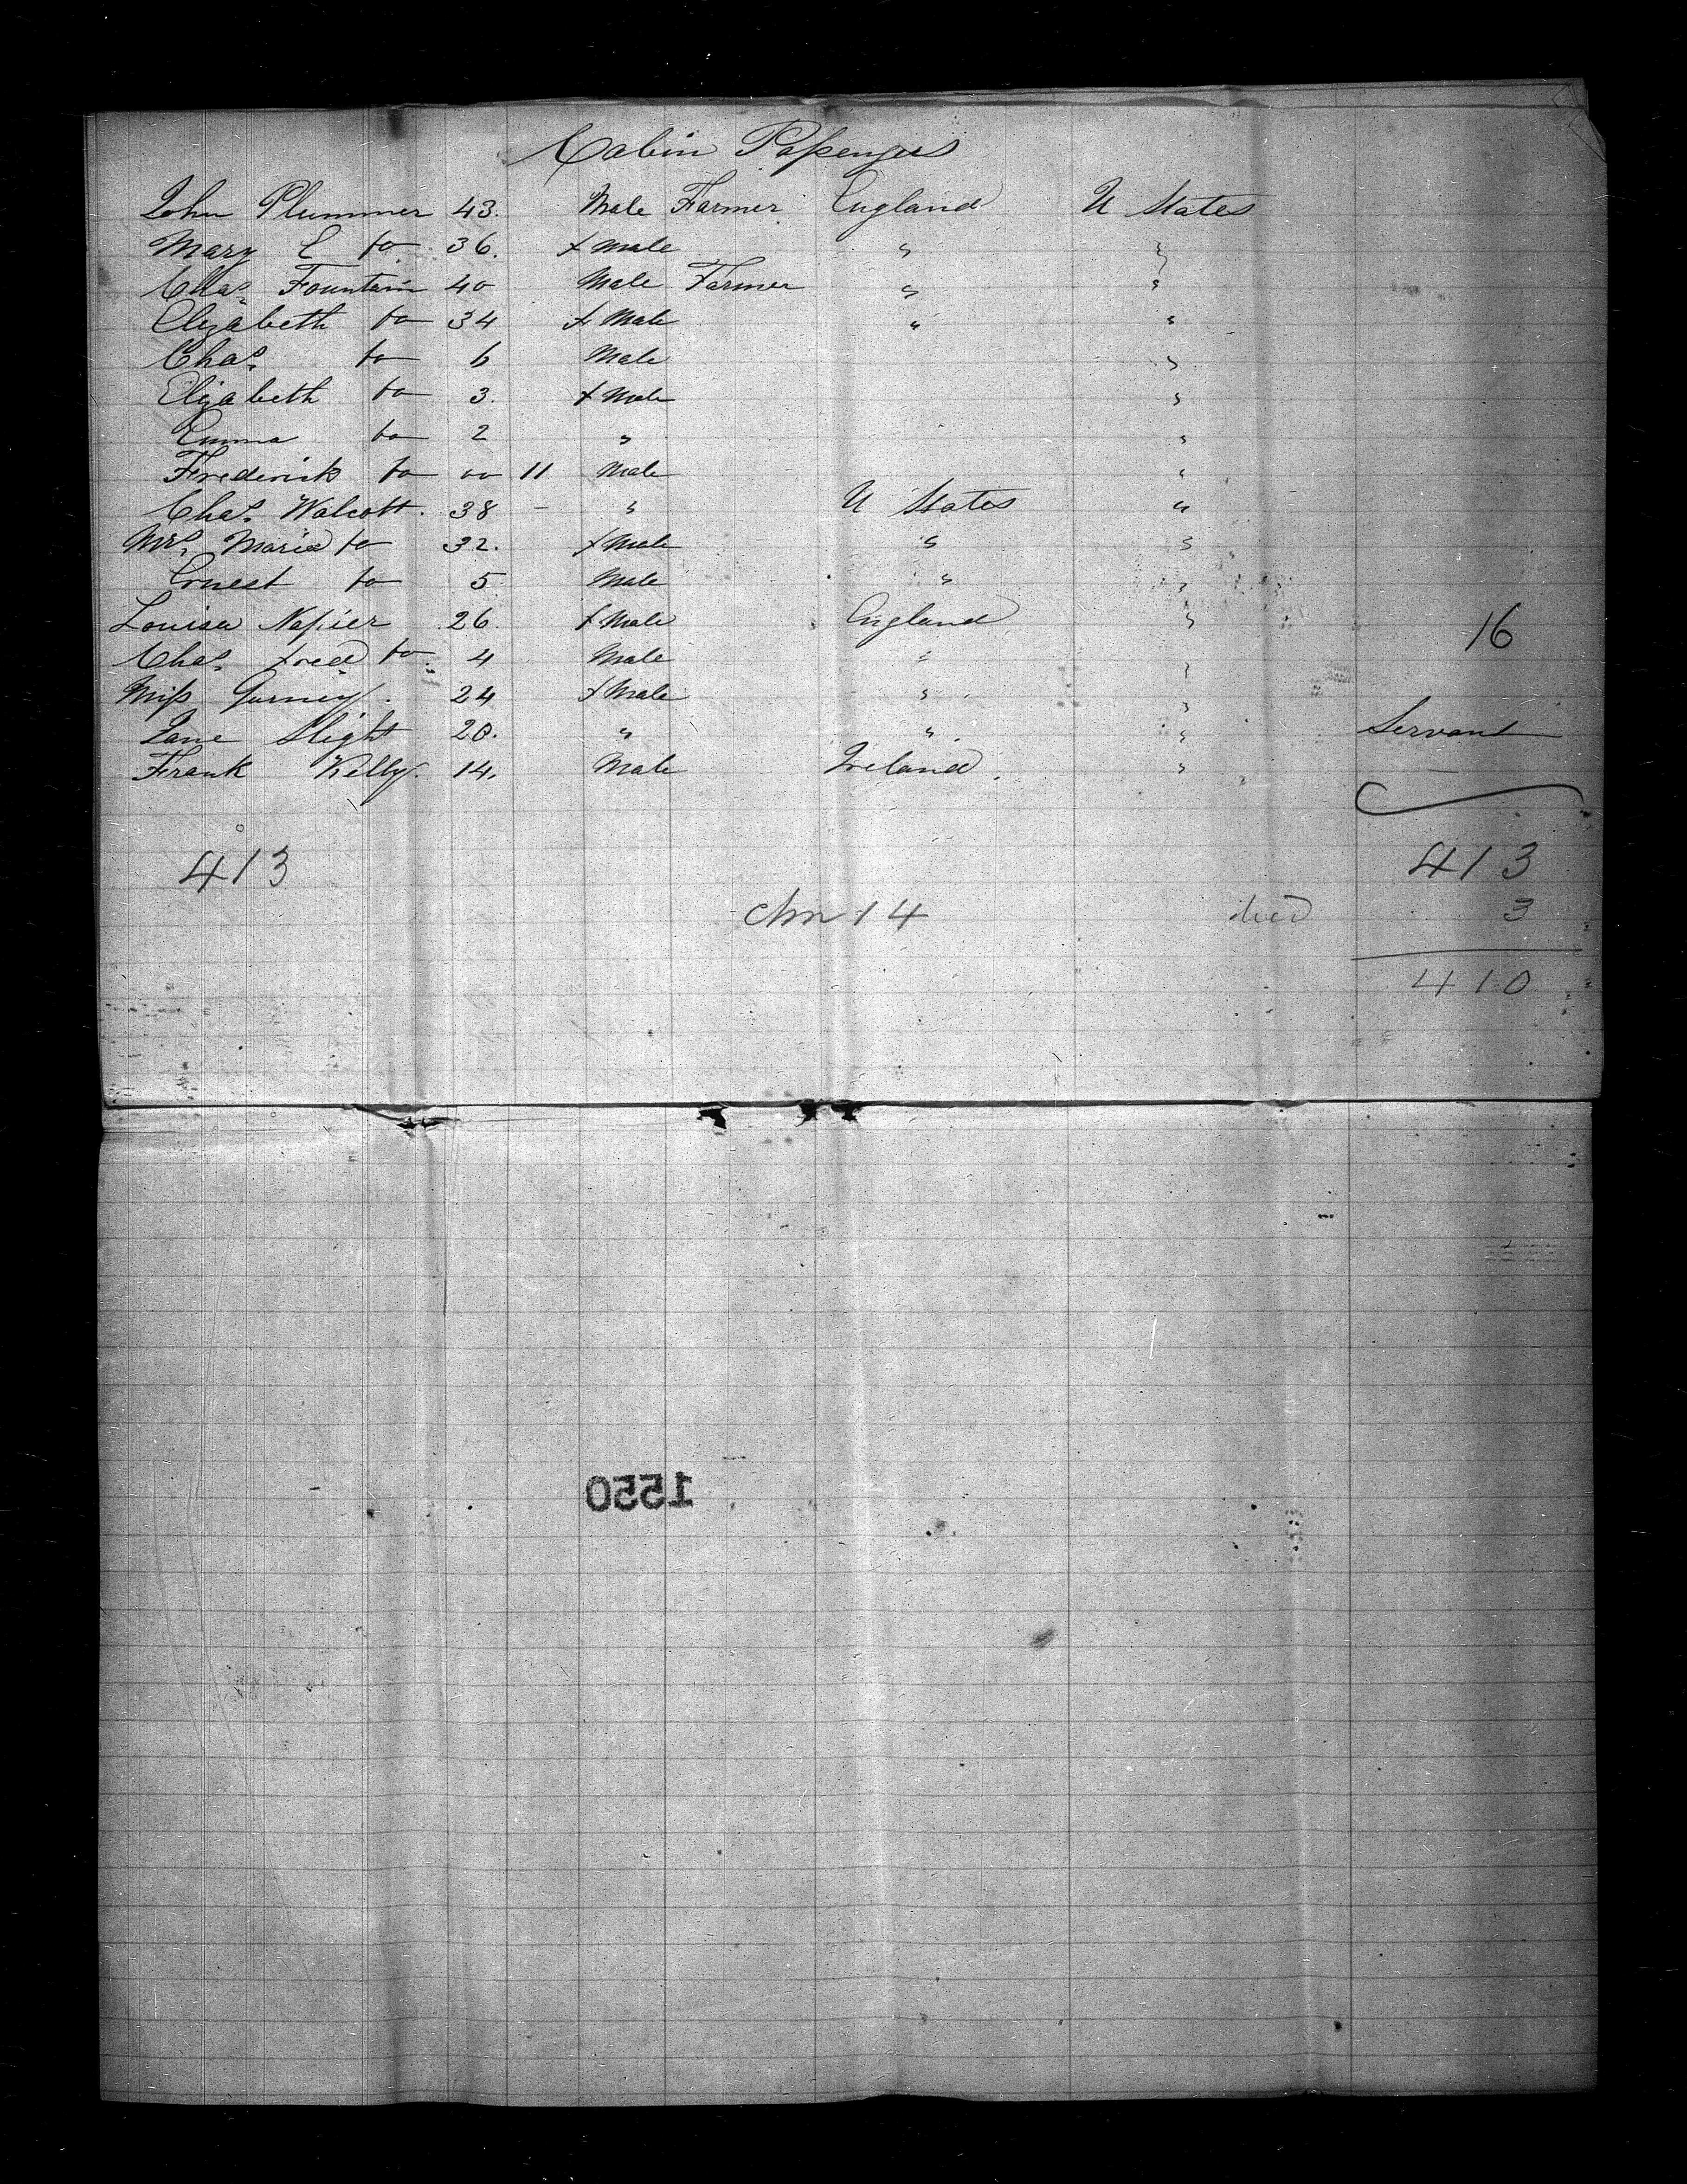 Cabin Passengers
John Plummer 43. Male Farmer England U States
Mary E do 36. f Male " "
Chas. Fountain 40 Male Farmer " "
Elizabeth do 34 f Male " "
Chas. do 6 Male "
Elizabeth do 3. f Male "
Emma do 2 " "
Frederick do 00 11 Male "
Chas. Walcott. 38 - " U States "
Mrs. Maria do 32. f Male " "
Ernest do 5 Male " "
Louisa Napier 26. f Male England " 16
Chas. Fred do 4 Male " "
Miss Gurney. 24 f Male " "
Jane Slight 20. " " " Servant
Frank Kelly. 14. Male Ireland. "
413 413
chn 14 died 3
410
1550